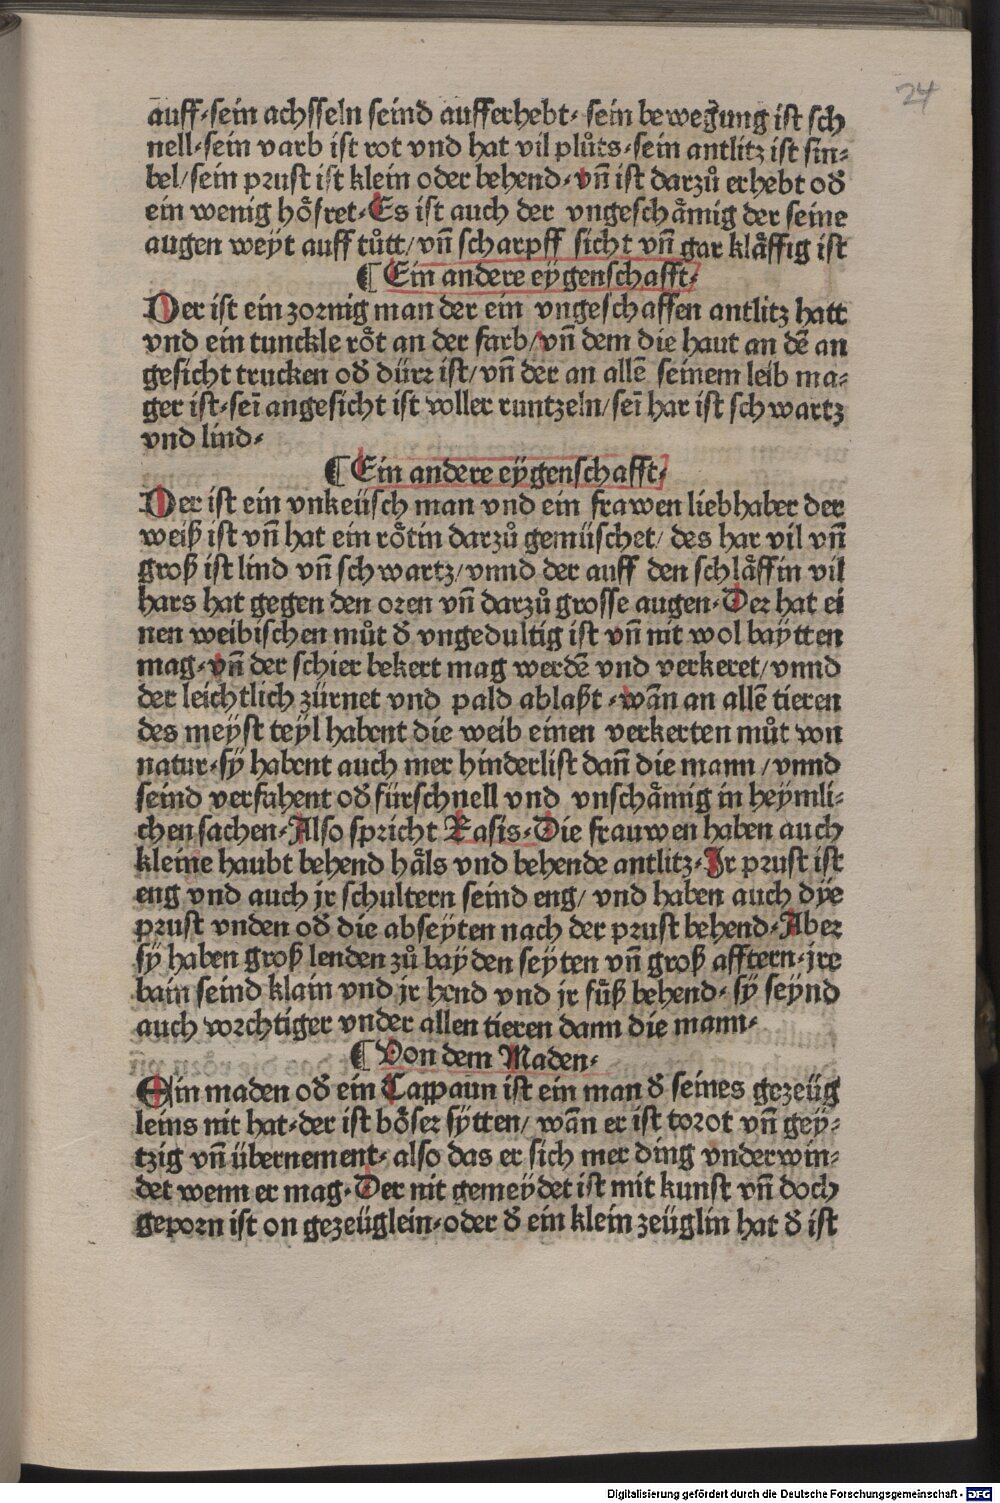 24
auff·sein achsseln seind aufferhebt· sein bewegung ist sch
nell·sein varb ist rot vnd hat vil plůts·sein antlitz ist sin⸗
bel/sein prust ist klein oder behend·vn̄ ist darzů erhebt od̓
ein wenig hoͤfret·Es ist auch der vngeschaͤmig der seine
augen weyt auff tůtt/vn̄ scharpff sicht vn̄ gar klaͤffig ist
¶ Ein andere eÿgenschafft·
Der ist ein zornig man der ein vngeschaffen antlitz hatt
vnd ein tunckle roͤt an der farb/vn̄ dem die haut an dē an
gesicht trucken od̓ dürr ist/vn̄ der an allē seinem leib ma⸗
ger ist·sei̅ angesicht ist voller runtzeln/sei̅ har ist schwartz
vnd lind·
¶ Ein andere eÿgenschafft·
Der ist ein vnkeüsch man vnd ein frawen liebhaber der
weiß ist vn̄ hat ein roͤtin darzů gemüschet/ des har vil vn̄
groß ist lind vn̄ schwartz/vnnd der auff den schlaͤffin vil
hars hat gegen den oren vn̄ darzů grosse augen·Der hat ei
nen weibischen můt d̓ vngedultig ist vn̄ nit wol baÿtten
mag·vn̄ der schier bekert mag werdē vnd verkeret/vnnd
der leichtlich zürnet vnd pald ablaßt·wān an allē tieren
des meÿst teÿl habent die weib einen verkerten můt von
natur·sÿ habent auch mer hinderlist dan̄ die mann/vnnd
seind verfahent od̓ fürschnell vnd vnschaͤmig in heÿmli⸗
chen sachen·Also spricht Rasis·Die frauwen haben auch
kleine haubt behend haͤls vnd behende antlitz·Ir prust ist
eng vnd auch jr schultern seind eng/ vnd haben auch dÿe
prust vnden od̓ die abseÿten nach der prust behend·Aber
sÿ haben groß lenden zů baÿden seÿten vn̄ groß afftern·jre
bain seind klain vnd jr hend vnd jr fůß behend·sÿ seÿnd
auch vorchtiger vnder allen tieren dann die mann·
¶ Von dem Maden·
Ein maden od̓ ein Cappaun ist ein man d̓ seines gezeüg
leins nit hat·der ist boͤser sÿtten/ wān er ist torot vn̄ geÿ⸗
tzig vn̄ übernement· also das er sich mer ding vnderwin⸗
det wenn er mag·Der nit gemeÿdet ist mit kunst vn̄ doch
geporn ist on gezeüglein·oder d̓ ein klein zeüglin hat d̓ ist
Digitalisierung gefördert durch die Deutsche Forschungsgemeinschaft - DFG